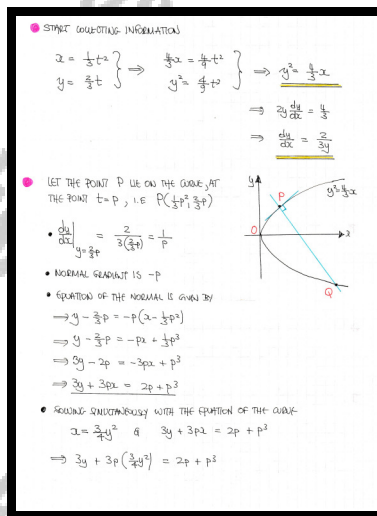 START COLLECTING INFORMATION
x = 1/3 t²
y = 2/3 t
} ⇒ 4/3 x = 4/9 t²
y² = 4/9 t²
} ⇒ y² = 4/3 x
⇒ 2y dy/dx = 4/3
⇒ dy/dx = 2/3y
LET THE POINT P LIE ON THE CURVE, AT
THE POINT t = p, I.E P(1/3 p², 2/3 p)
y
P
y² = 4/3 x
O
x
Q
• dy/dx | y = 2/3 p = 2/3(2/3 p) = 1/p
• NORMAL GRADIENT IS -p
• EQUATION OF THE NORMAL IS GIVEN BY
⇒ y - 2/3 p = -p(x - 1/3 p²)
⇒ y - 2/3 p = -px + 1/3 p³
⇒ 3y - 2p = -3px + p³
⇒ 3y + 3px = 2p + p³
• SOLVING SIMULTANEOUSLY WITH THE EQUATION OF THE CURVE
x = 3/4 y² & 3y + 3px = 2p + p³
⇒ 3y + 3p(3/4 y²) = 2p + p³